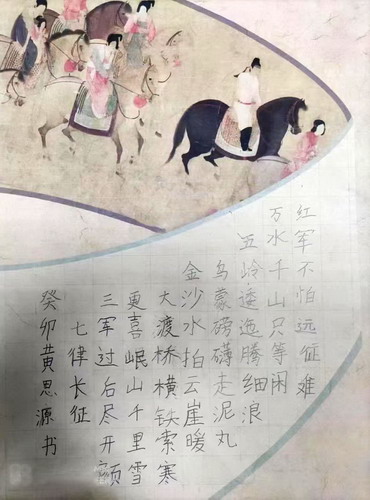 红军不怕远征难
万水千山只等闲
五岭逶迤腾细浪
乌蒙磅礴走泥丸
金沙水拍云崖暖
大渡桥横铁索寒
更喜岷山千里雪
三军过后尽开颜
七律长征
癸卯黄思源书